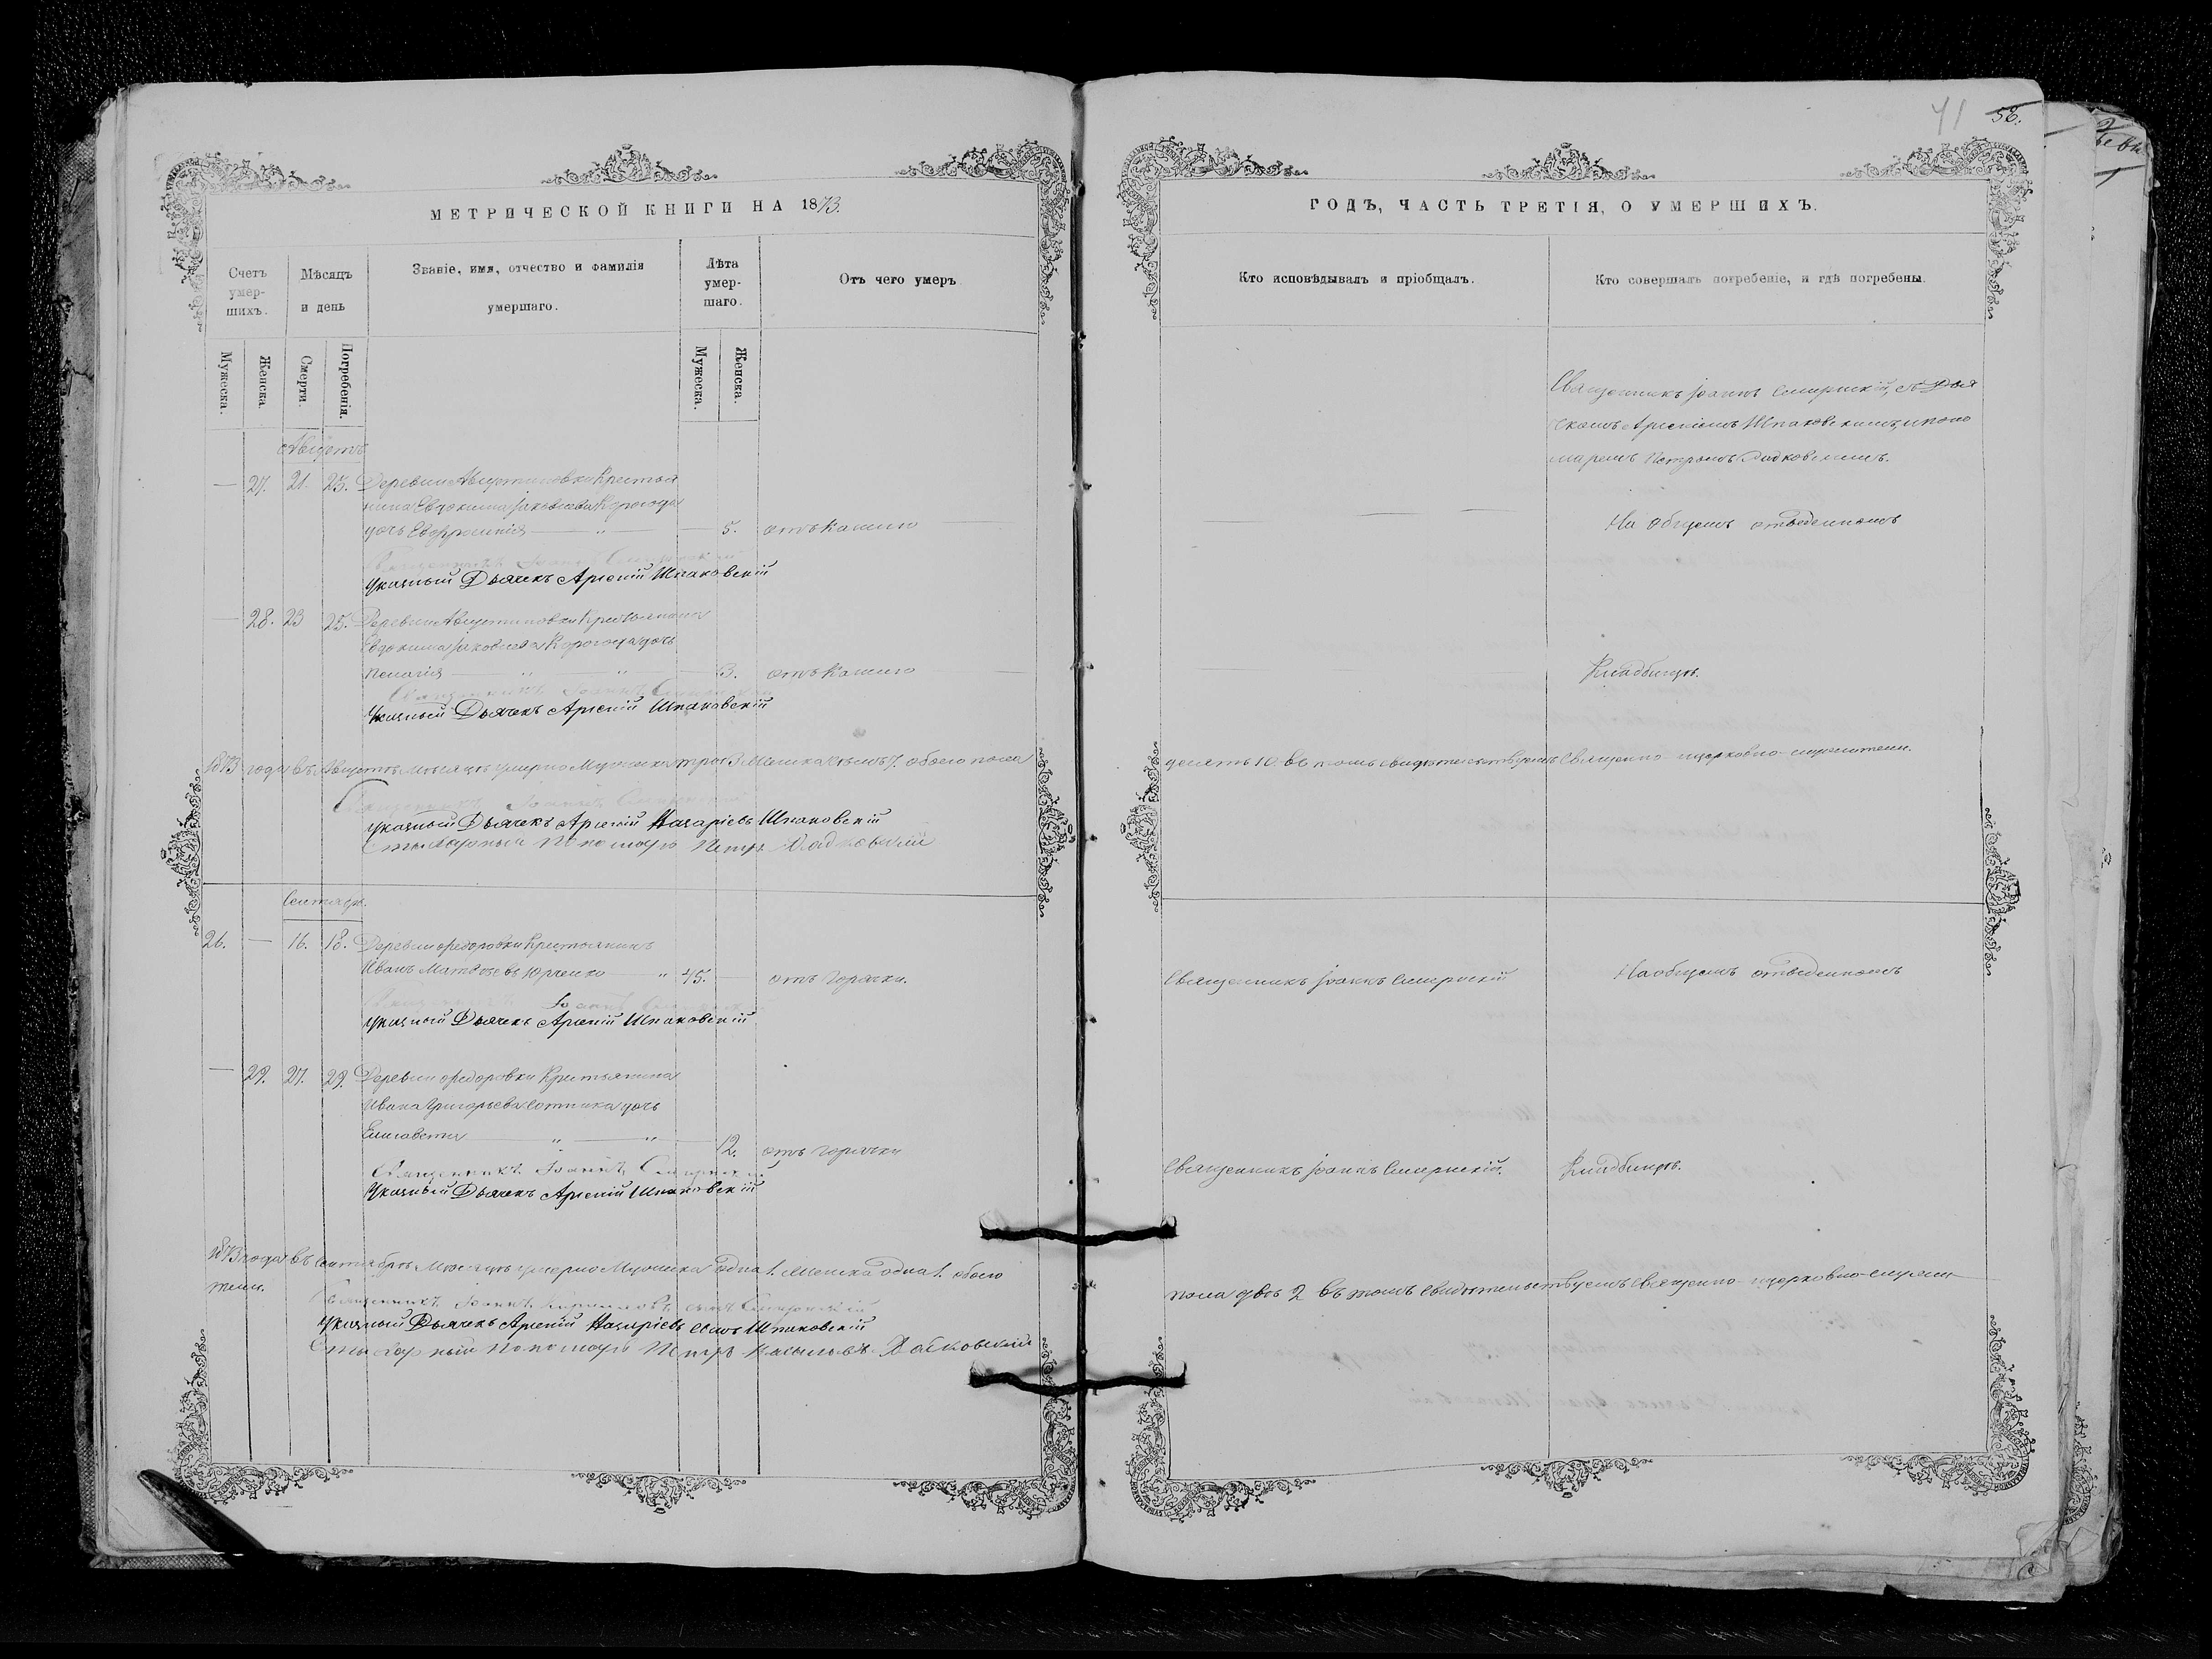 41 58.
МЕТРИЧЕСКОЙ КНИГИ НА 1873.
Счетъ умер-шихъ.
Мѣсяцъ и день
Званіе, имя, отчество и фамилія умершаго.
Лѣта умер-шаго.
Отъ чего умеръ
Мужеска.
Женска.
Смерти.
Погребенія.
Мужеска.
Женска.
Августъ
— 27. 21. 23. Деревни Августиновки Крестья
нина Евдокима Іаковлева Корогода
дочь Евфросинія — „ — — 5. отъ кашлю
Священникъ Іоаннъ Смирнскій
Указный Дьячекъ Арсеній Шпаковскій
— 28. 23 25. Деревни Августиновки Крестьянина
Евдокима Іаковлева Корогода дочь
Пелагія — „ — „ — 3. отъ кашлю
Священникъ Іоаннъ Смирнскій
Указный Дьячекъ Арсеній Шпаковскій
1873 года въ Августѣ мѣсяцѣ умерло Мужеска три 3 Женска семь 7. обоего пола
Священникъ Іоаннъ Смирнскій
Указный Дьячекъ Арсеній Назаріевъ Шпаковскій
Пономарь Петръ
Сентябрь.
26. — 16. 18. Деревни Федоровки Крестьянинъ
Иванъ Матѳѣевъ Юрченко — „ 45. — отъ горячки.
Священникъ Іоаннъ Смирнскій
Указный Дьячекъ Арсеній Шпаковскій
— 29. 27. 29. Деревни Федоровки Крестьянина
Ивана Григорьева Сотника дочь
Елисавета — „ — „ — 12. отъ горячки
Священникъ Іоаннъ Смирнскій
Указный Дьячекъ Арсеній Шпаковскій
1873 года въ Сентябрѣ Мѣсяцѣ умерло Мужеска одна 1. Женска одна 1. обоего
тели.
Священникъ Іоаннъ Смирнскій
Указный Дьячекъ Арсеній Назаріевъ сынъ Шпаковскій
Пономарь Петръ Васильевъ
ГОДЪ, ЧАСТЬ ТРЕТІЯ, О УМЕРШИХЪ.
Кто исповѣдывалъ и пріобщалъ.
Кто совершалъ погребеніе, и гдѣ погребены.
Священникъ Іоаннъ Смирнскій, съ Дья
чкомъ Арсеніемъ Шпаковскимъ, и поно
маремъ Петромъ
— — На общемъ отведенномъ
— — Кладбищѣ.
десять 10. въ томъ свидѣтельствуемъ Священно-церковно-служители.
Священникъ Іоаннъ Смирнскій На общемъ отведенномъ
Священникъ Іоаннъ Смирнскій. Кладбищѣ.
пола двѣ 2 въ томъ свидѣтельствуемъ Священно-церковно-служи